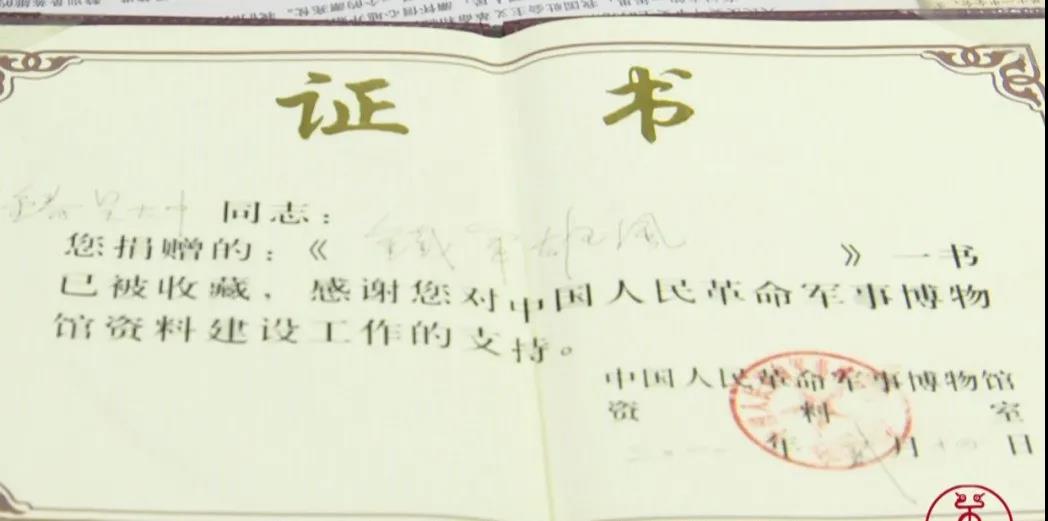 证 书
同志：
您捐赠的：《鐵軍雄風》一书
已被收藏，感谢您对中国人民革命军事博物
馆资料建设工作的支持。
中国人民革命军事博物馆
资 料 室
年 月 日